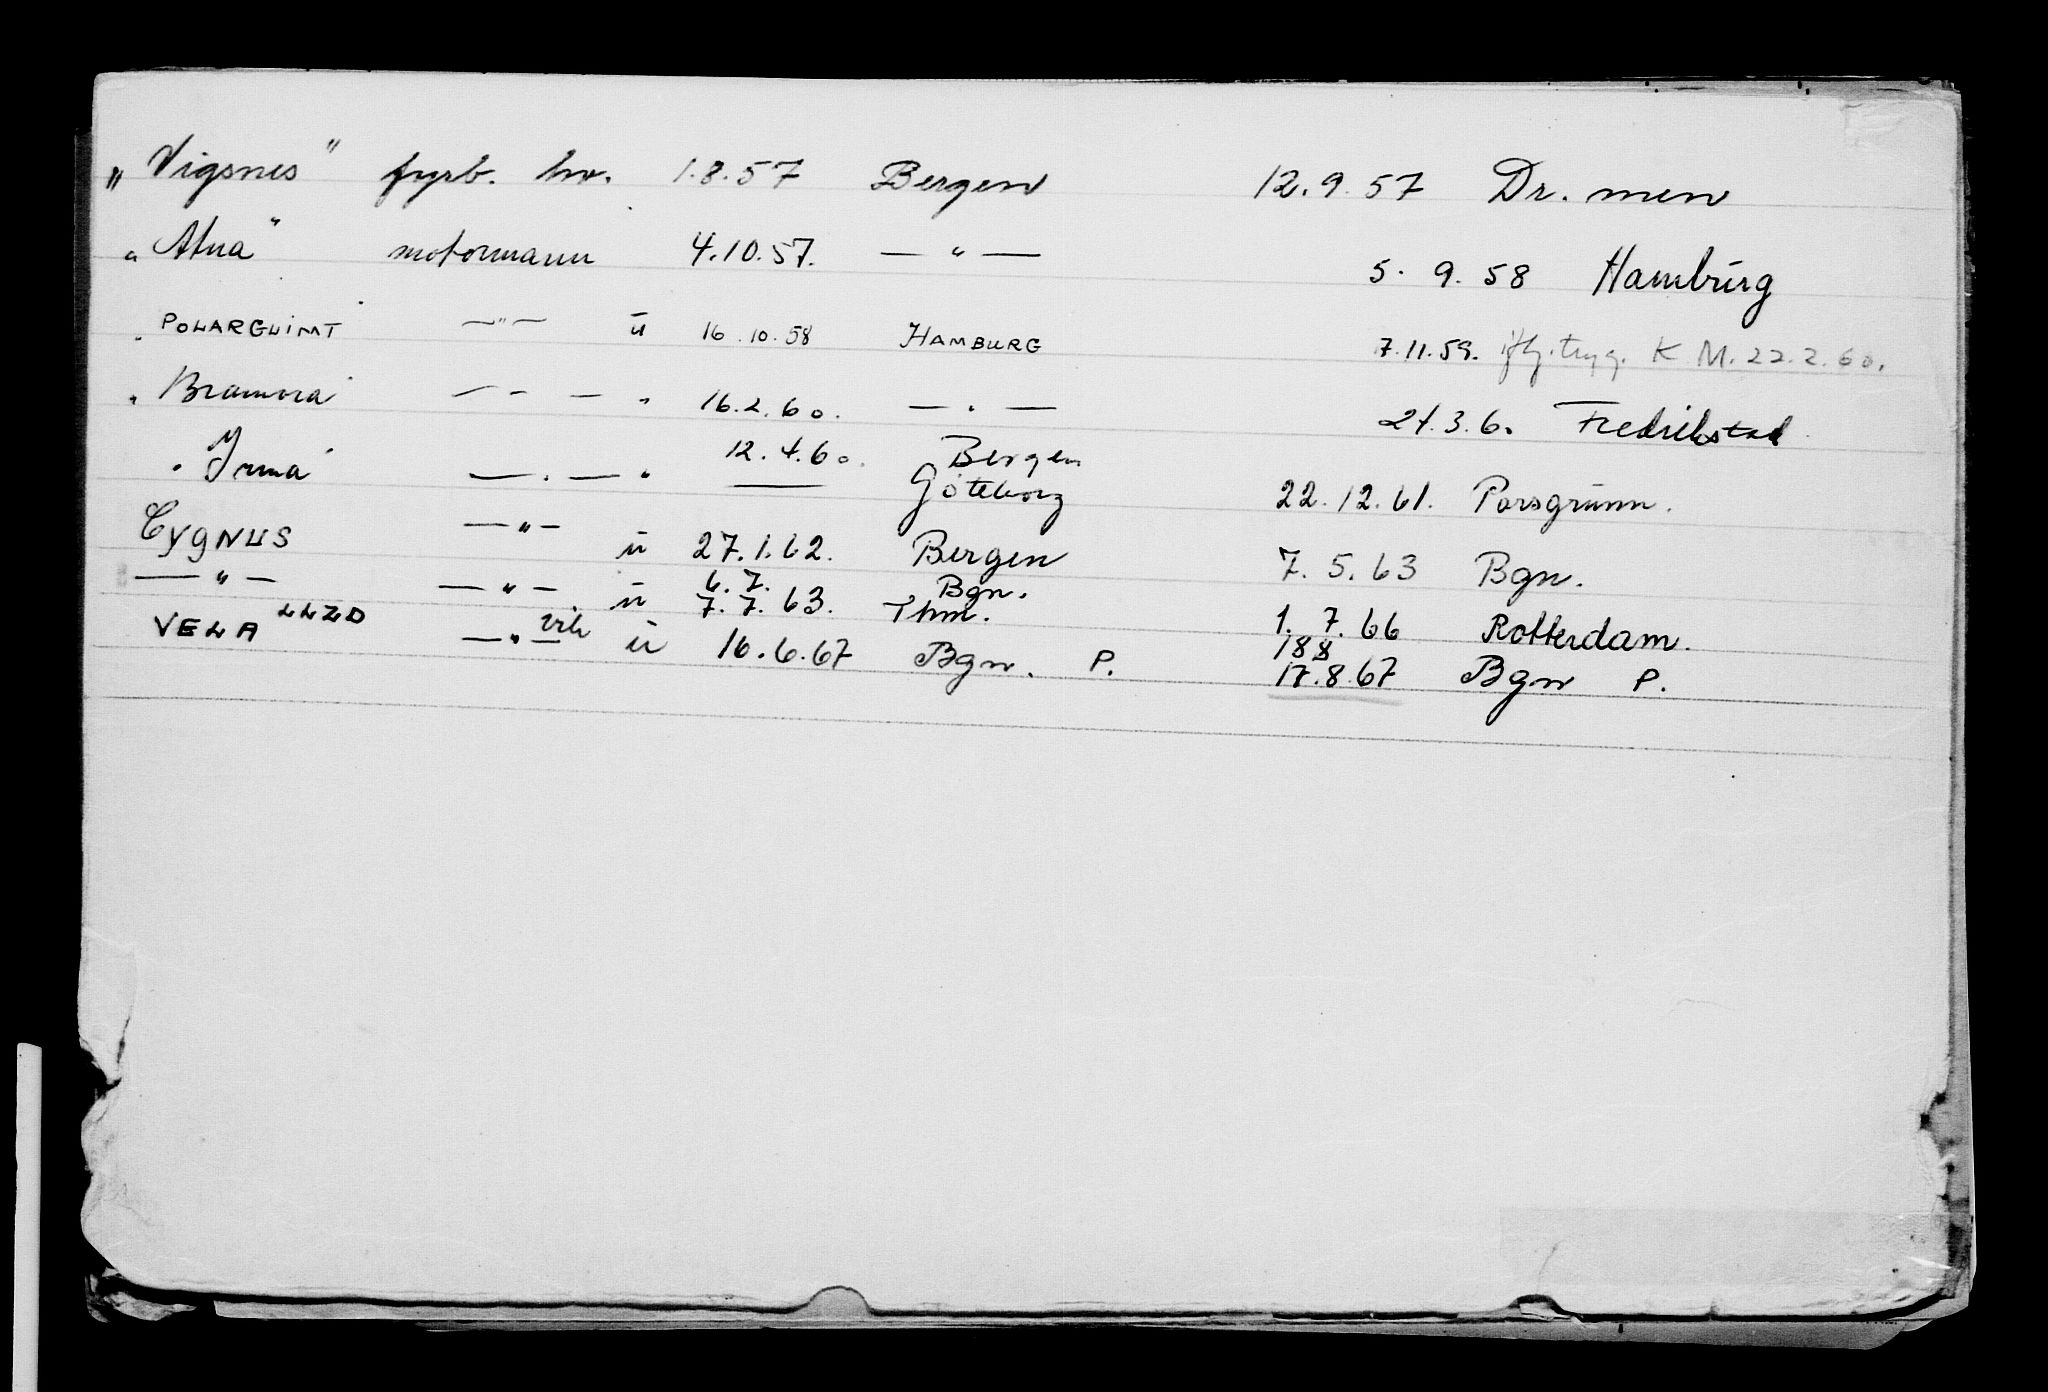 „ Vigsnes " fyrb. hv. 1.8.57 Bergen 12.9.57 Dr.men
„ Atna " motormann 4.10.57. — " — 5.9.58 Hamburg
" POLARGLIMT —"— u 16.10.58 HAMBURG 7.11.59. iflg. tryg. K M. 22.2.60.
" Bramora " — " — " 16.2.60. — " — 21.3.60 Fredrikstad
" Irma " — " — " 12.4.60. Bergen
Göteborg 22.12.61. Porsgrunn.
CYGNUS — " — u 27.1.62. Bergen 7.5.63 Bgn.
— " — — " — u 6.7. Bgn.
7.7.63. Thm. 1.7.66 Rotterdam.
VELA LLZD — " — vik u 16.6.67 Bgn. P. 17.8.67 Bgn P.
188